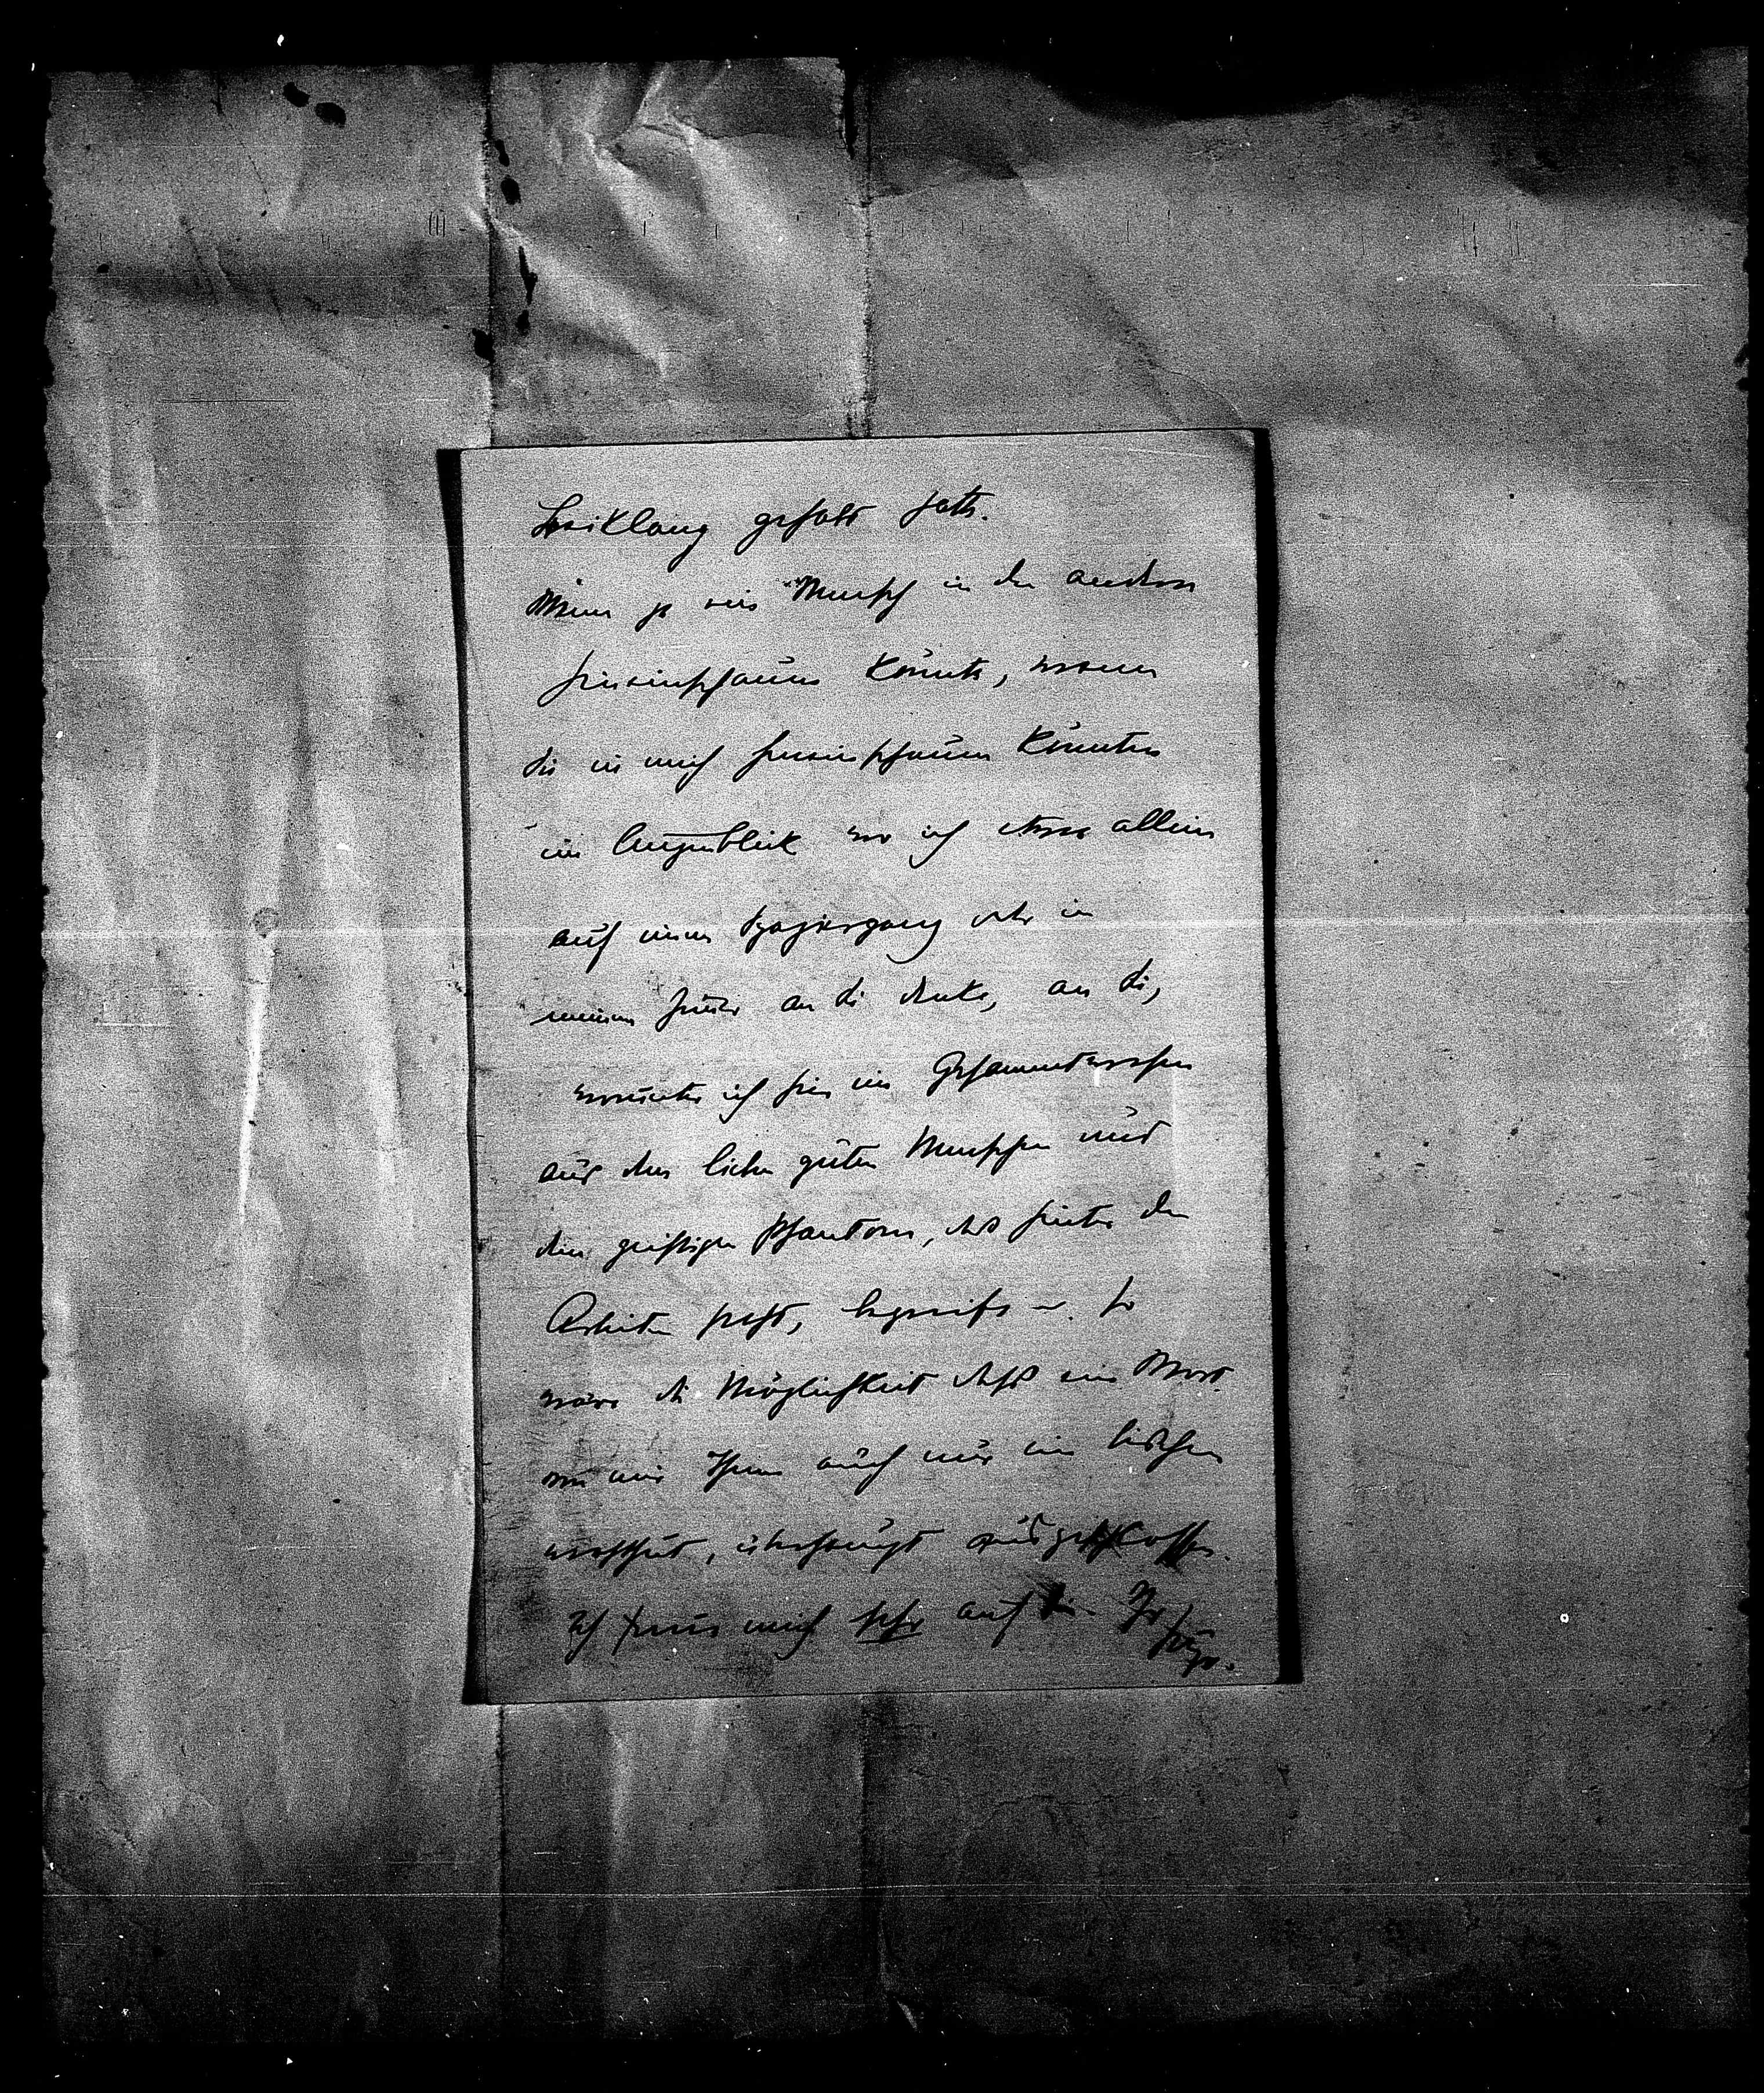 Beiklang gehabt hätte.
Wenn je ein Mensch in den andern
hineinschauen könnte, wenn
Sie in mich hineinschauen könnten
im Augenblick wo ich etwa allein
auf einem Spaziergang oder in
meinem Zimmer an Sie denke, an Sie,
worunter ich hier ein Gesammtwesen
aus dem lieben guten Menschen und
dem geistigen Phantom, das hinter den
Arbeiten steht, begreife – so
wäre die Möglichkeit dass ein Wort
von mir Ihnen auch nur ein bischen
wehthut, überhaupt ausgeschlossen.
Ich freue mich sehr auf Sie. Ihr
Hugo.